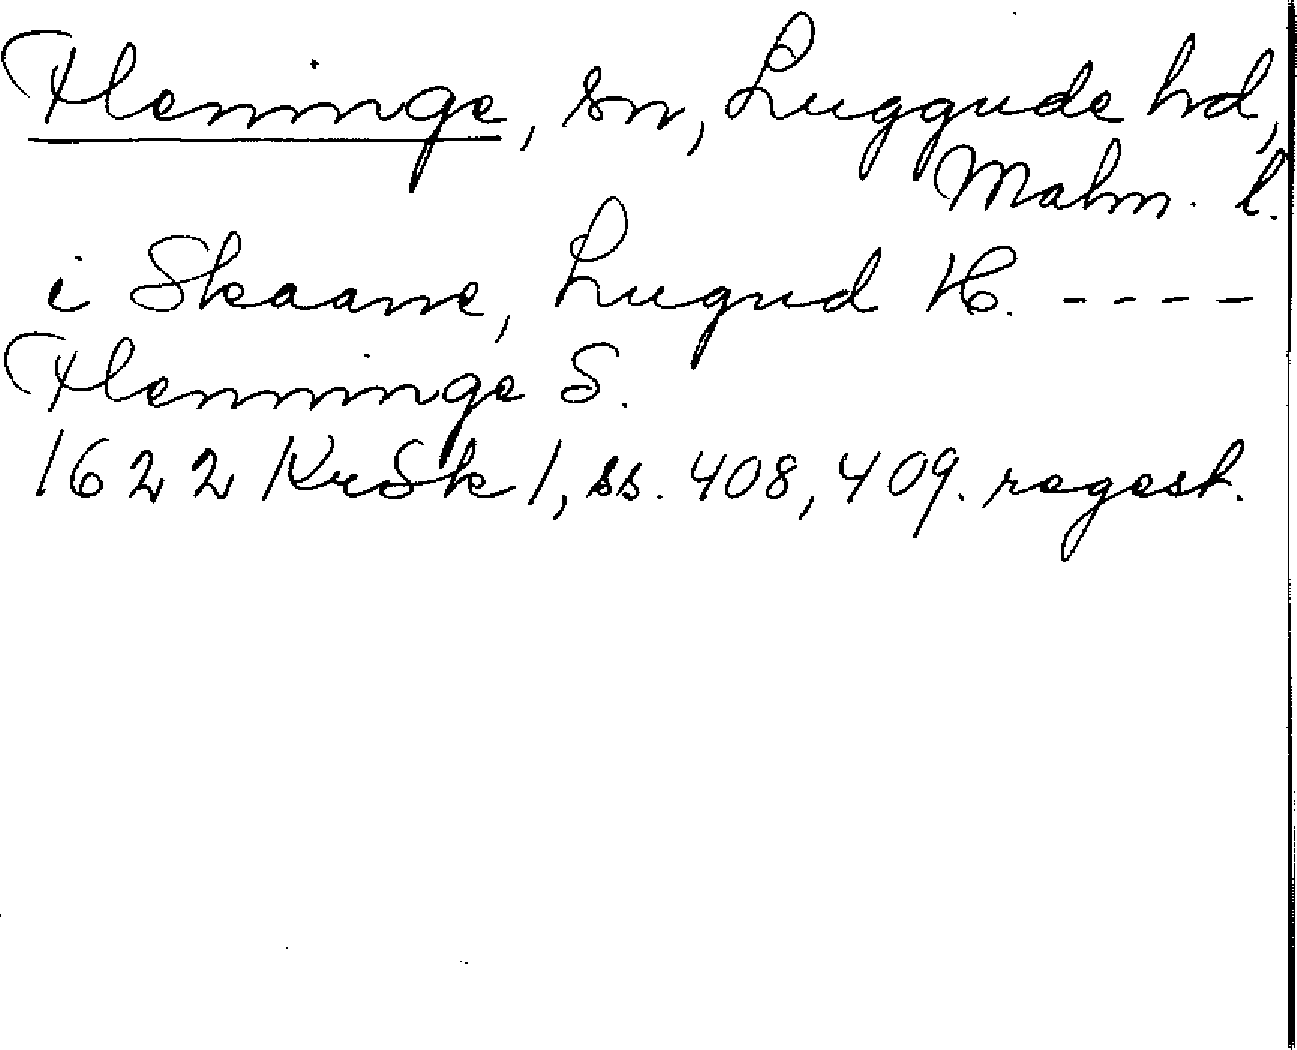 Fleninge, sn, Luggude hd,
Malm. l.
i Skaane, Lugud H. ----
Flenninge S.
1622 KrSk 1, ss. 408, 409. regest.